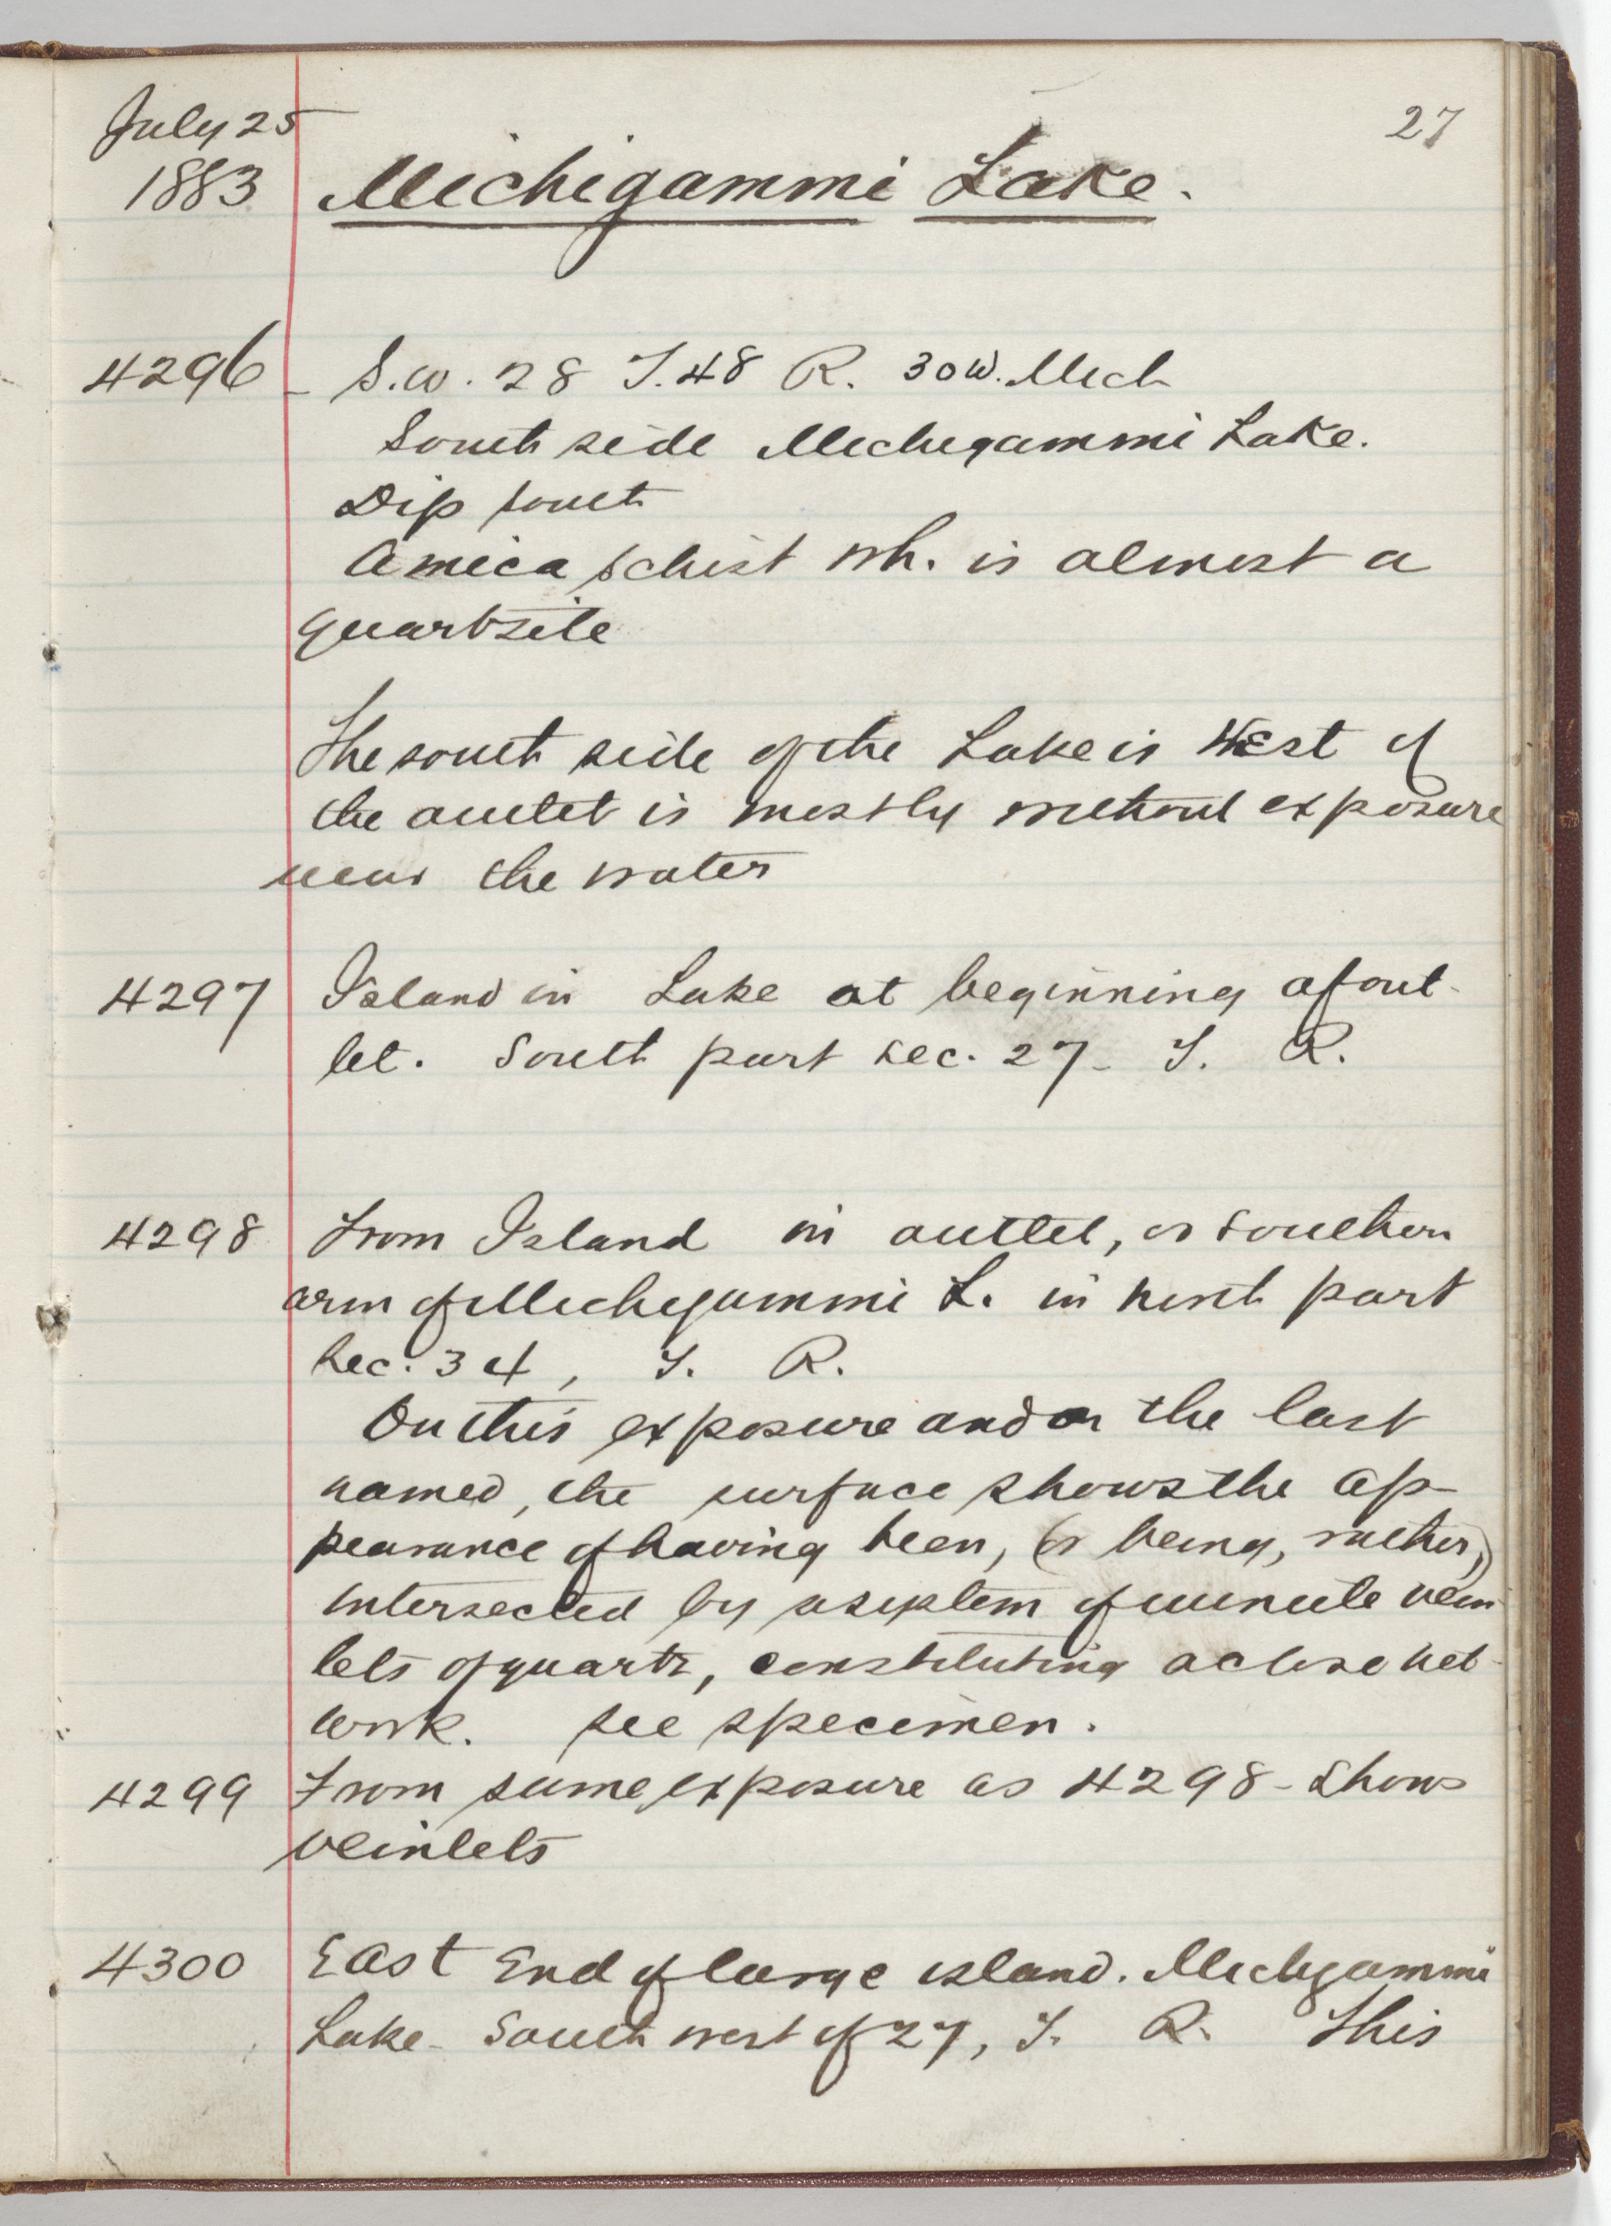 27
July 25
1883 Michigammi Lake.
4296 - S.W. 28 T.48 R. 30W. Mich
South side Michigammi Lake.
Dip south
A mica schist wh. is almost a
quartzite
The south side of the Lake is West of
the outlet is mostly without exposure
near the water
4297 Island in Lake at beginning of out-
let. South part sec. 27 - T. R.
4298 From Island in outlet, or southern
arm of Michigammi L. in north part
sec. 34, T. R.
On this exposure and on the last
named, the surface shows the ap-
pearance of having been, (or being, rather,)
intersected by a system of minute vein
lets of quartz, constituting a close net-
work. see specimen.
4299 From same exposure as 4298 - Shows
veinlets
4300 East End of large island. Michgammi
Lake - South west of 27, T. R. This